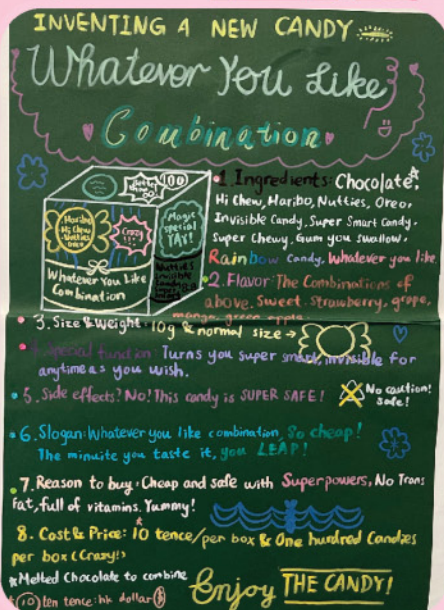 INVENTING A NEW CANDY
Whatever You Like
Combination
Better than ever!
100
Haribo
Hi Chew
Nutties
Oreo
Crazy!!!
Magic
special
TAX!
Whatever You Like
Combination
Nutties
Invisible
Candy
Super
1. Ingredients: Chocolate*,
Hi Chew, Haribo, Nutties, Oreo,
Invisible Candy, Super Smart Candy,
Super Chewy, Gum you swallow,
Rainbow Candy, Whatever you like.
2. Flavor: The Combinations of
above. Sweet. Strawberry, grape,
mango, green apple
3. Size & Weight: 10g & normal size →
4. Special function: Turns you super smart, invisible for
anytime as you wish.
5. Side effects? No! This candy is SUPER SAFE!
No caution!
Safe!
6. Slogan: Whatever you like combination, So cheap!
The minuite you taste it, you LEAP!
7. Reason to buy: Cheap and safe with Superpowers, No Trans
Fat, full of vitamins. Yummy!
8. Cost & Price: *10 tence/per box & One hundred Candies
per box (Crazy!)
*Melted Chocolate to combine
*10 ten tence: hk dollar $
Enjoy THE CANDY!